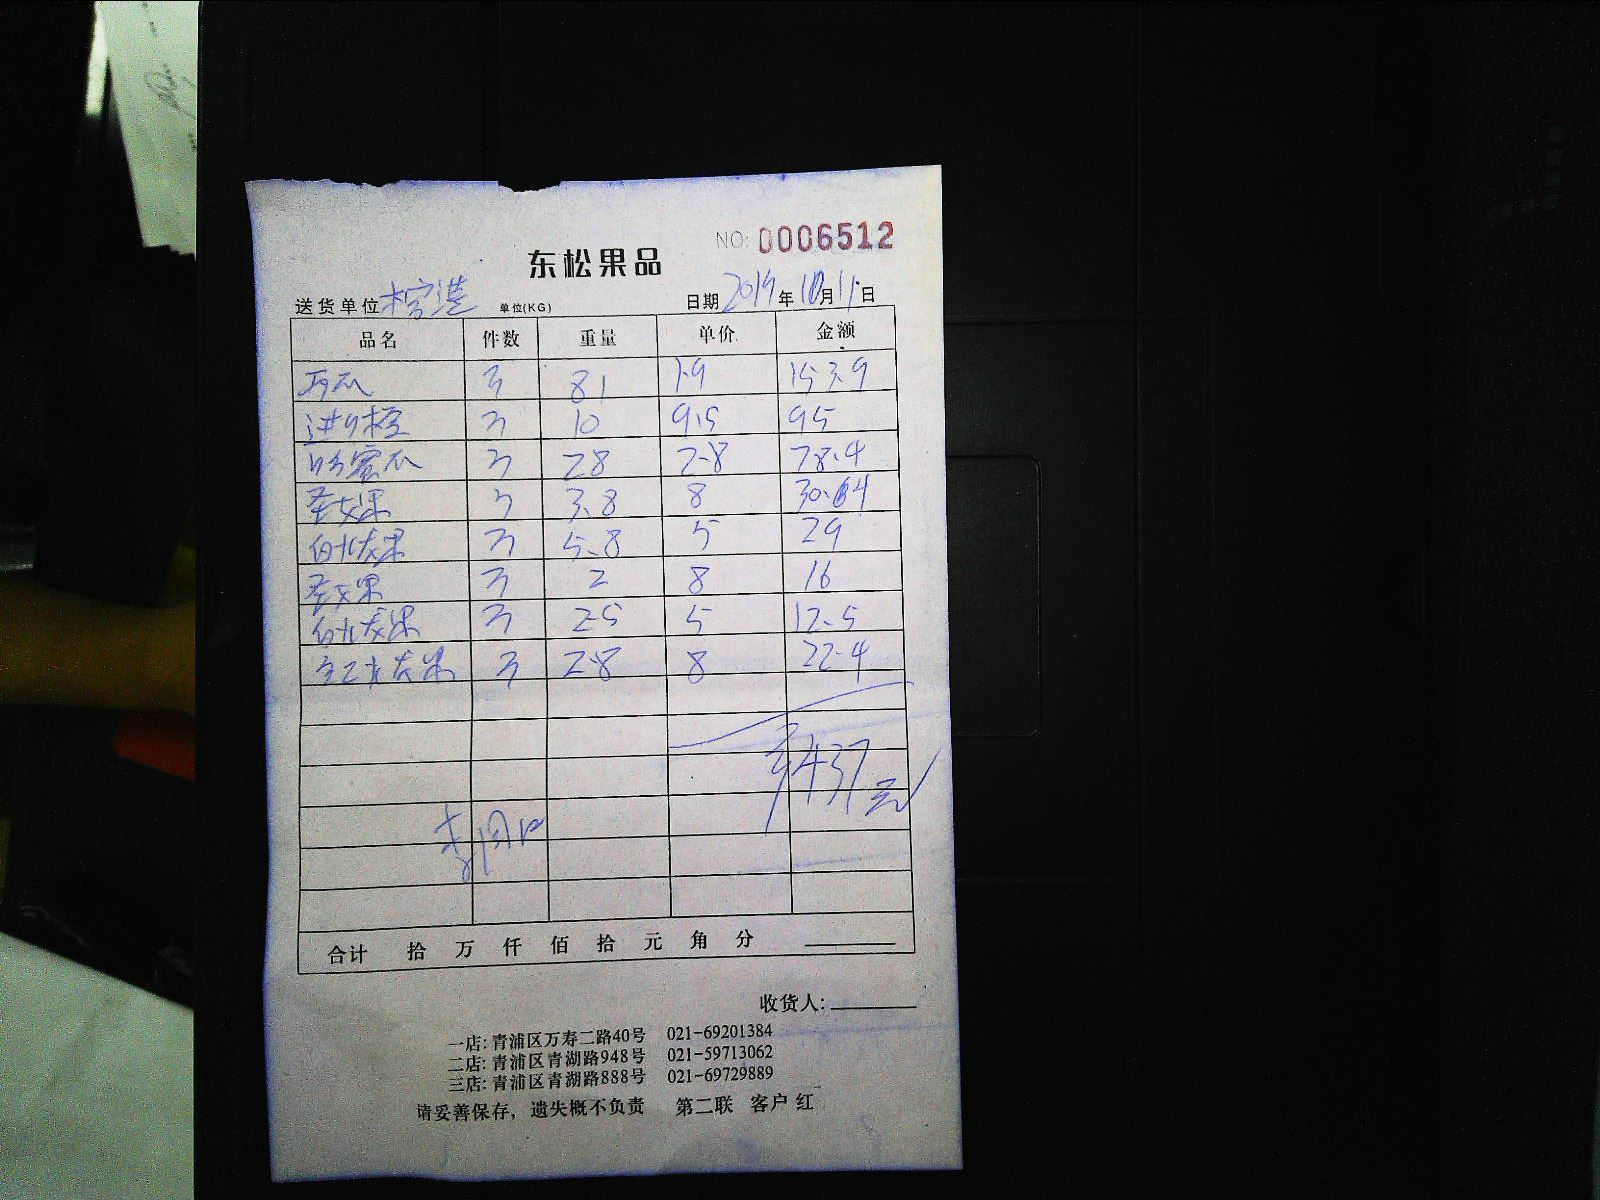 NO: 0006512
东松果品
送货单位 单位(KG) 日期 2019 年 10 月 11 日
品名 件数 重量 单价 金额
西瓜 81 1.9 153.9
进口橙 10 9.5 95
哈蜜瓜 28 2.8 78.4
圣女果 3.8 8 30.4
白火龙果 5.8 5 29
圣女果 2 8 16
白火龙果 2.5 5 12.5
红火龙果 2.8 8 22.4
437元
合计 拾 万 仟 佰 拾 元 角 分
收货人:
一店: 青浦区万寿二路40号 021-69201384
二店: 青浦区青湖路948号 021-59713062
三店: 青浦区青湖路888号 021-69729889
请妥善保存，遗失概不负责 第二联 客户 红